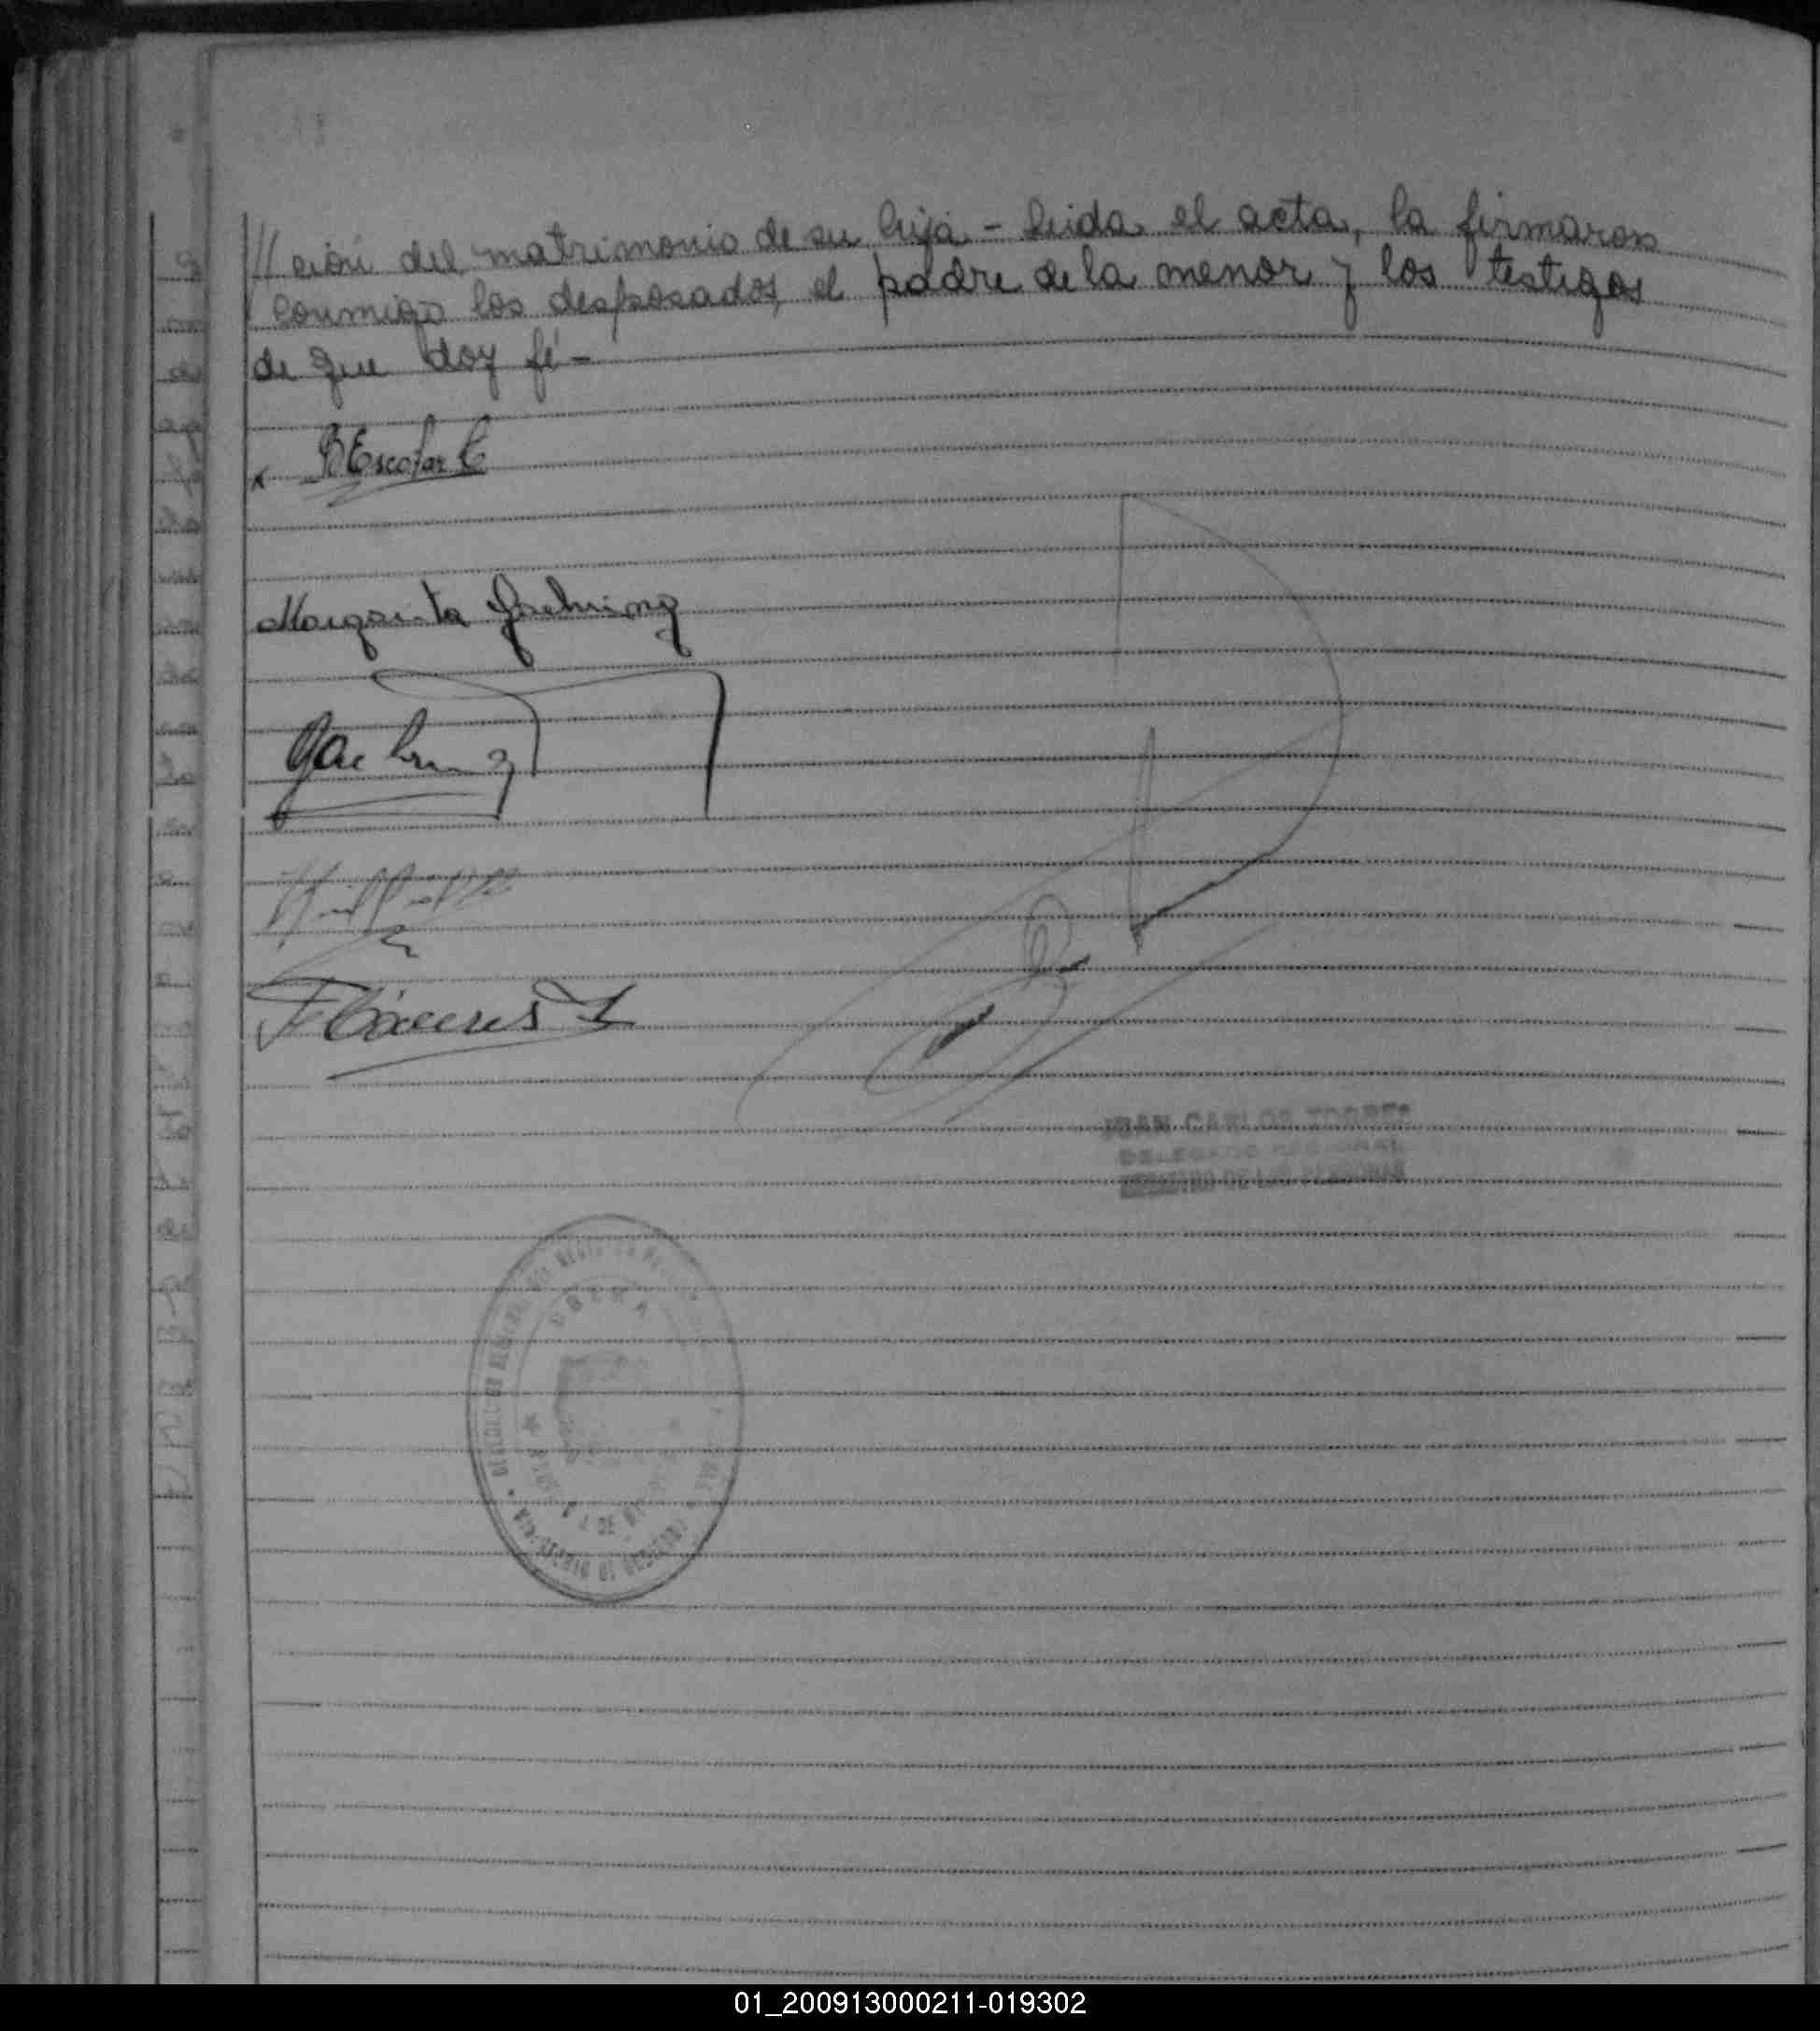 //ción del matrimonio de su hija - Leida el acta, la firmaron
conmigo los desposados, el padre de la menor y los testigos
de que doy fé -
x B Escobar C
Margarita Jaehning
Jaehning
F Cáceres
JUAN CARLOS TORRES
DELEGADO REGIONAL
REGISTRO DE LAS PERSONAS
OBERA
01_200913000211-019302